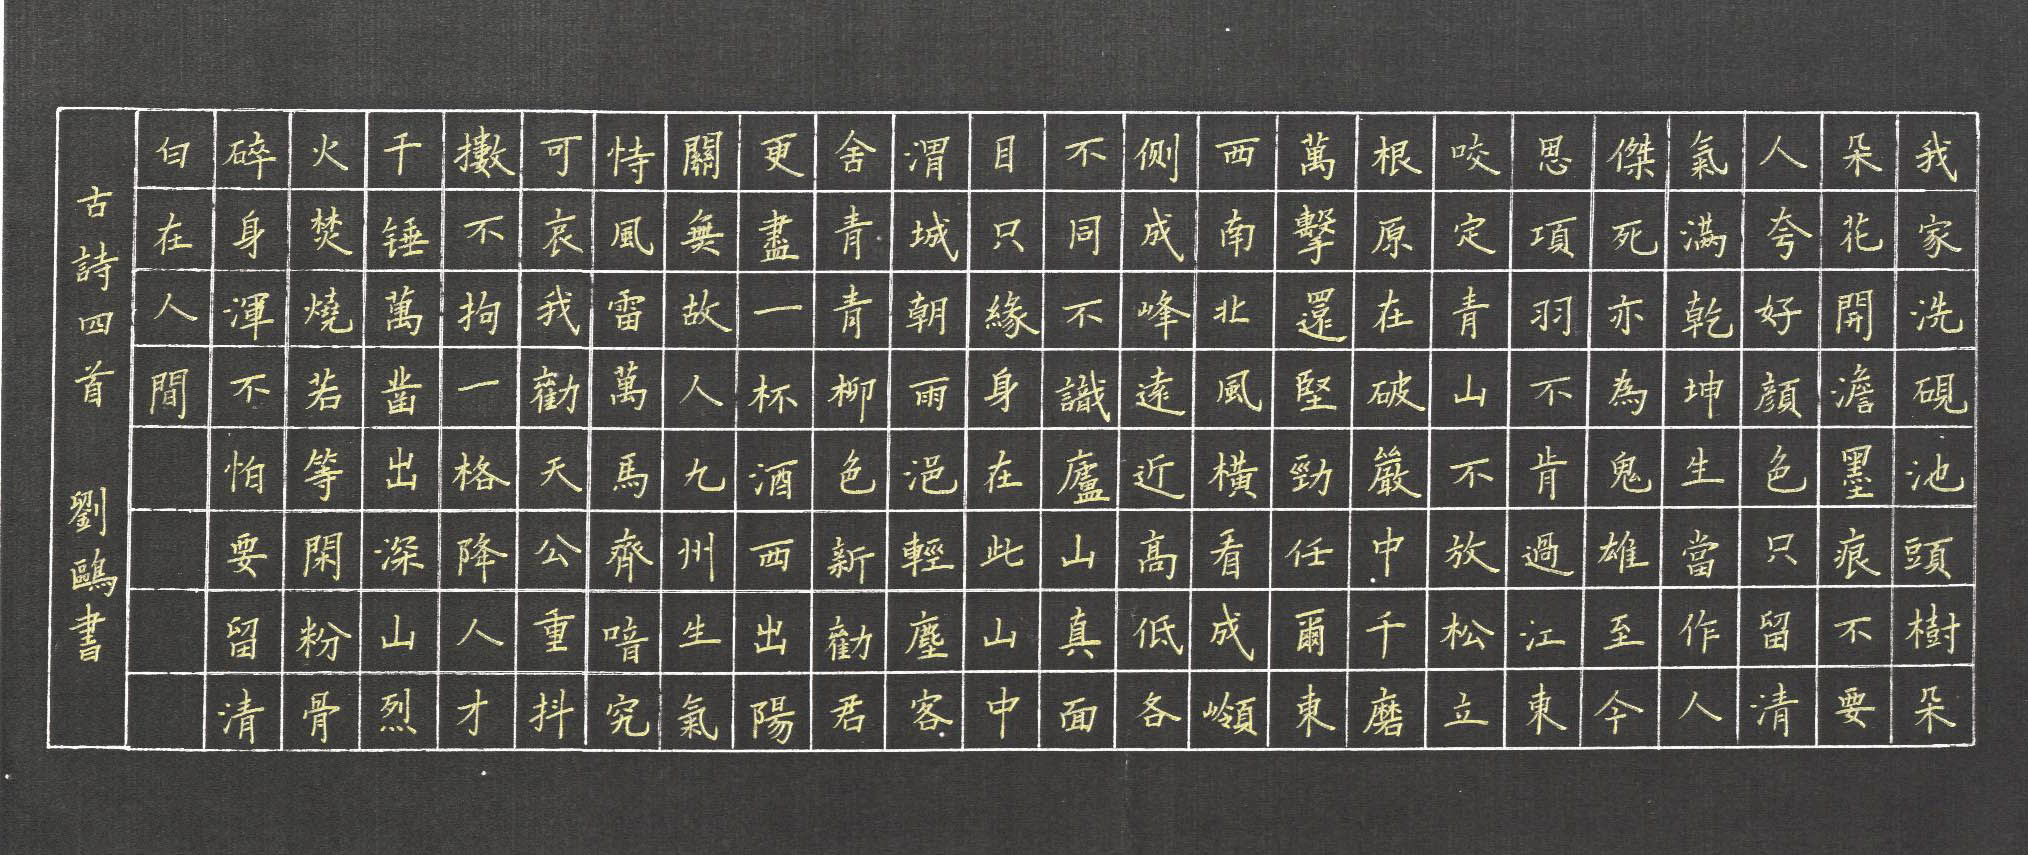 我家洗硯池頭樹朵
朵花開澹墨痕不要
人夸好顏色只留清
氣滿乾坤生當作人
傑死亦為鬼雄至今
思項羽不肯過江東
咬定青山不放松立
根原在破巖中千磨
萬擊還堅勁任爾東
西南北風橫看成嶺
側成峰遠近高低各
不同不識廬山真面
目只緣身在此山中
渭城朝雨浥輕塵客
舍青青柳色新勸君
更盡一杯酒西出陽
關無故人九州生氣
恃風雷萬馬齊喑究
可哀我勸天公重抖
擻不拘一格降人才
千锤萬凿出深山烈
火焚燒若等閑粉骨
碎身渾不怕要留清
白在人間
古詩四首 劉鷗書